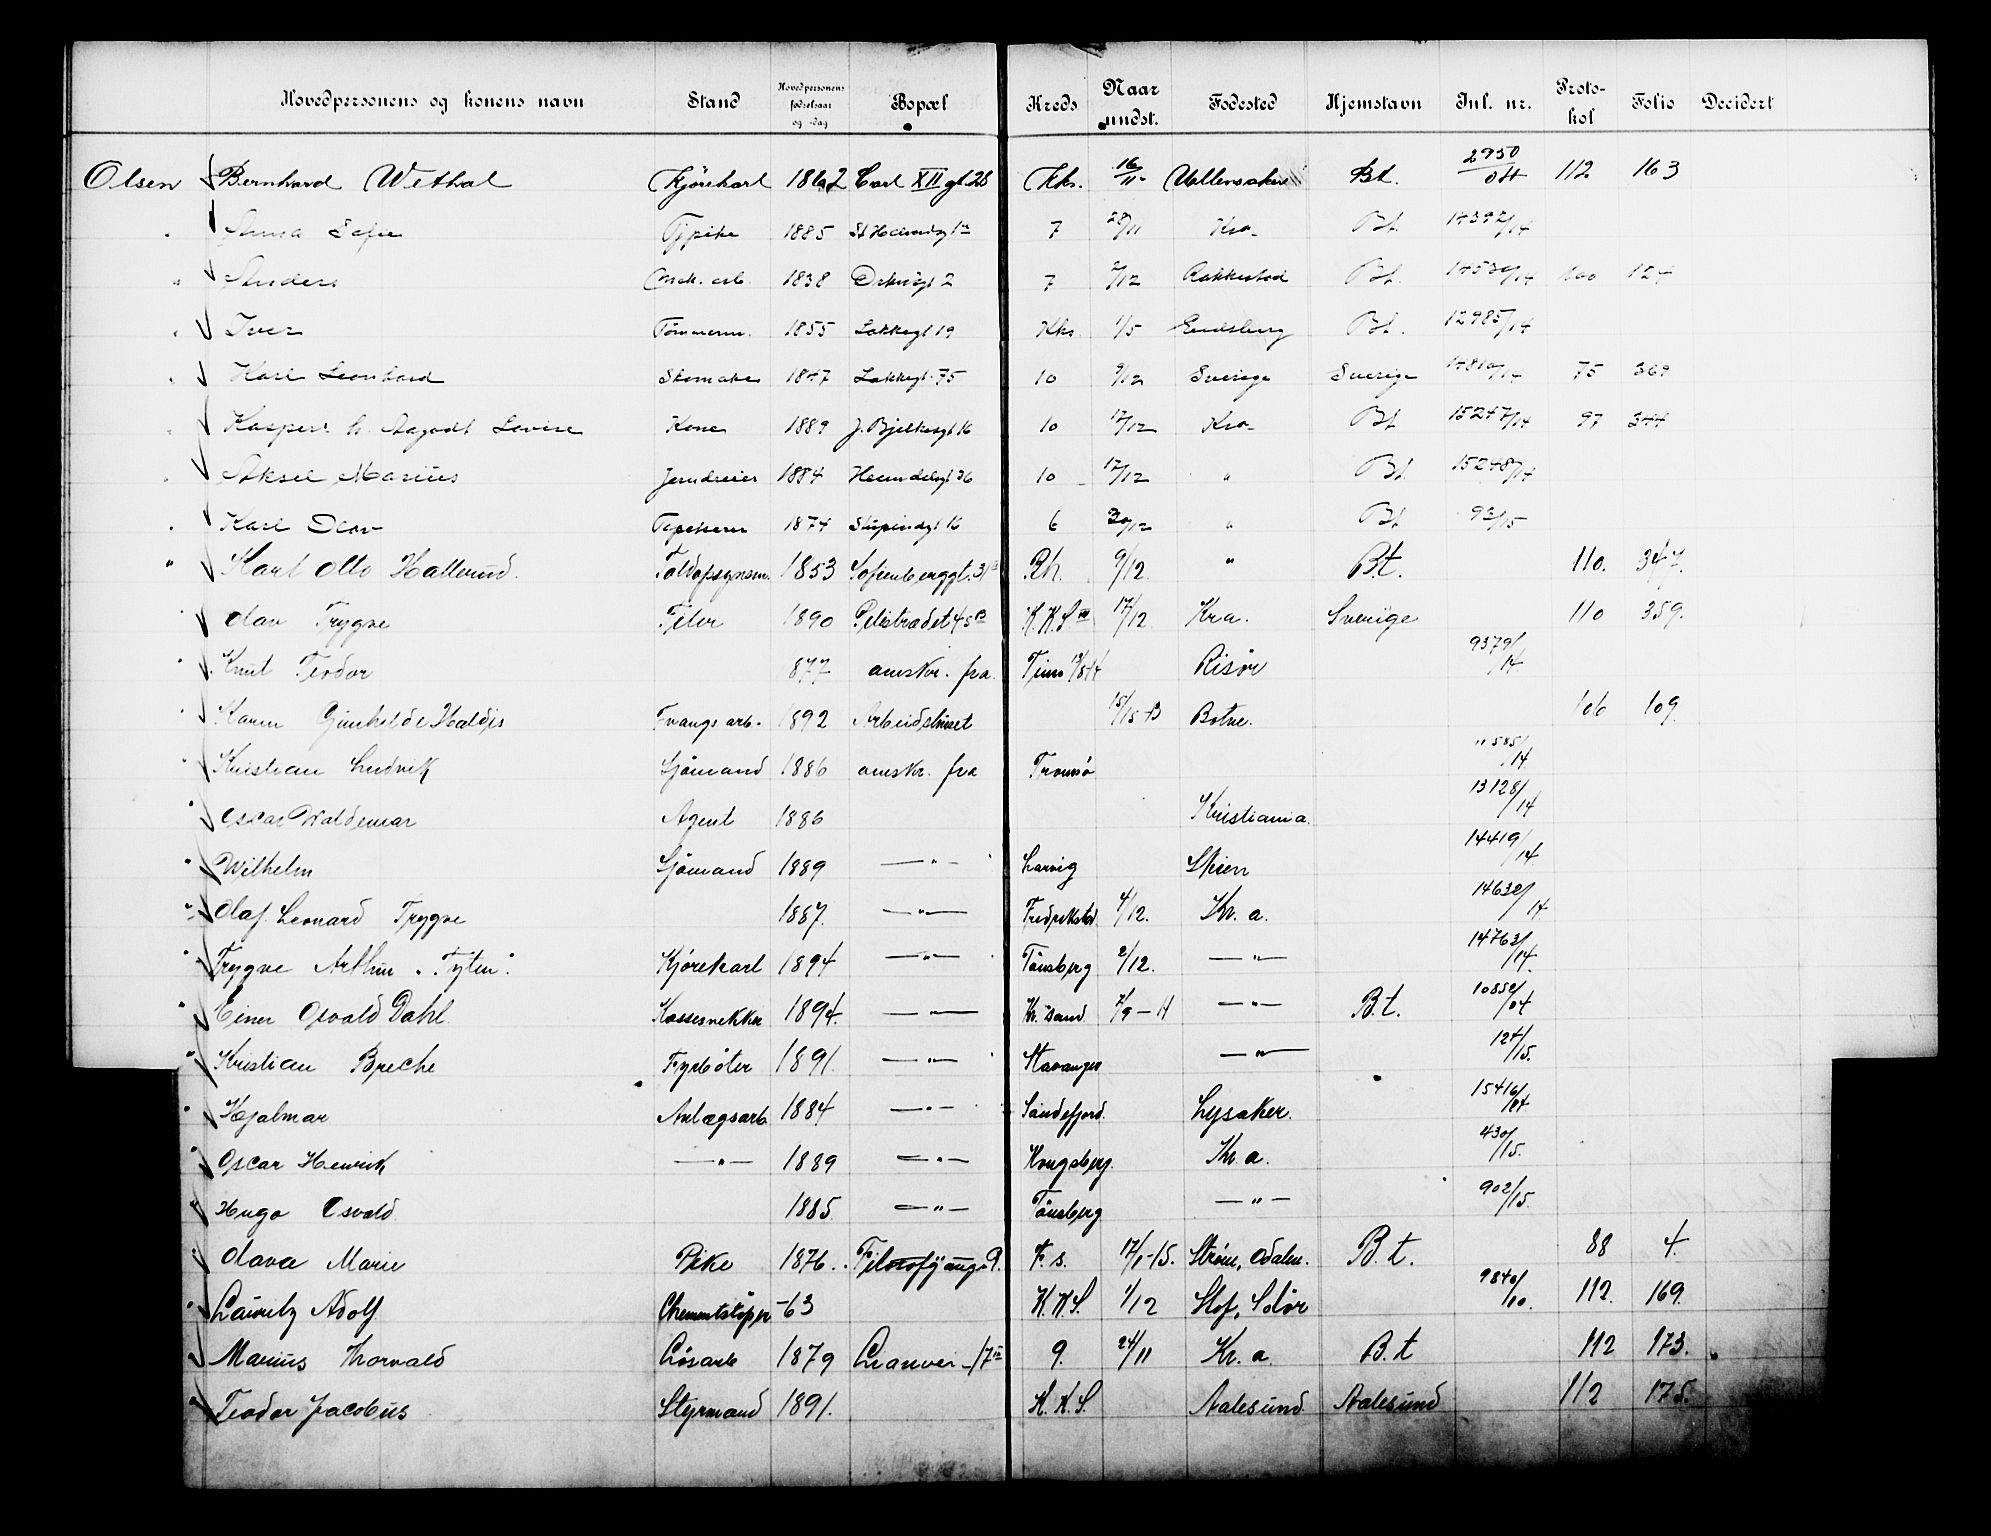 Hovedpersonens og konens navn Stand Hovedpersonens fødselsaar og -dag Bopæl Kreds Naar undst. Fødested Hjemstavn Jnl. nr. Protokol Folio Decidert
Olsen Bernhard Wethal Kjørekarl 1862 Carl XII gt 28 Kks. 16/11 Ullensaker Bt. 2950/ 112 163
" Anna Sofie 1885 7 28/11 Kra. Bt. 14392/14
" Anders 1838 7 2/12 Rakkestad Bt. 100 124
" Iver Tømmerm. 1855 Lakkegt 19 Kks. 1/5 Bt. 12985/14
" Karl Leonhard Skomaker 1847 Lakkegt. 75 10 9/12 Sverige Sverige 75 369
" Kaspers h. Aagodt Lovise Kone 1889 J. Bjelkesgt 16 10 17/12 Kra. Bt 15247/14 97 344
" Aksel Marius Jerndreier 1884 Heimdalsgt 36 10 17/12 " Bt 15248/14
" Karl Olav Tapetserer 1874 Stupindgt 16 6 30/12 " Bt 93/15
" Karl Otto Hallerud. Toldopsynsm. 1853 Sofienberggt. 31 Rh. 9/12. " B.t. 110. 347.
" Olav Trygve Filer 1890 Pilestrædet 45 c K.K.S. 17/12 Kra. Sverige 110 359.
" Knut Teodor 877 anskr. fra Risør 9379/14
" Karen Gunhilde Haldis Tvangsarb. 1892 Arbeidshuset 15/15-13 Botne. 106 109
Kristian Ludvik Sjømand 1886 anskr. fra Tromsø 11585/14
" Oscar Waldemar Agent 1886 Kristiania. 13128/14
" Wilhelm Sjømand 1889 — " — Larvig Skien 14419/14
" Olaf Leonard Trygve 1887. — " — Fredrikstad 4/12. Kr. a. 14632/14
" Trygve Arthur "Tyten". Kjørekarl 1894 — " — Tønsberg 2/12. — " — 14763/14.
" Einer Osvald Dahl Kassesnekker 1894. — " — Kr. sand. 7/9 - 14 — " — B.t. 10852/04
" Kristian Breche Fyrbøter 1891. — " — Stavanger — " — 124/15.
" Hjalmar Anlægsarb 1884 — " — Sandefjord. Lysaker. 15416/14
" Oscar Henrik — " — 1889 — " — Kongsberg. Kr. a. 430/15.
" Hugo Osvald 1885. — " — Tønsberg — " — 902/15.
" Olava Marie Pike 1876. Filosofgangen 9. F.s. 17/1-15. Strøm, Odalen. B.t. 88 4.
" Lauritz Adolf. -63 K.K.S. 1/12 Hof, Solør 9840/10. 112. 169.
" Marius Thorvald Løsarb 1879 9. 24/11 Kr. a. B.t 112 173.
" Teodor Jacobus Styrmand 1891. K.K.S. Aalesund Aalesund 112 175.